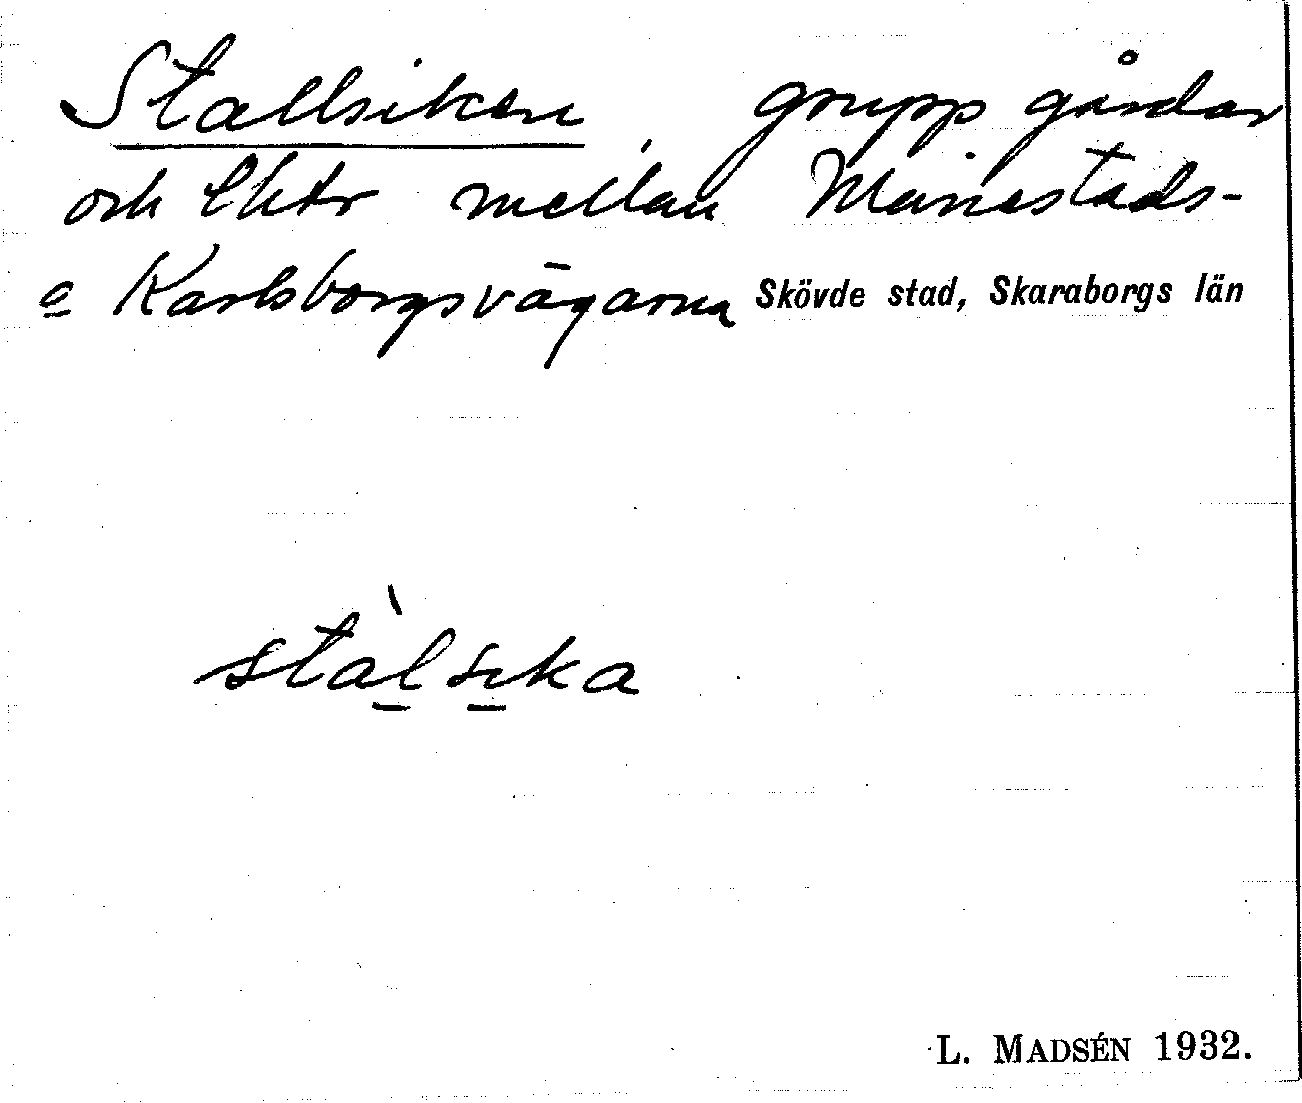 Stallsiken, grupp gårdar
och lhtr mellan Mariestads-
o Karlsborgsvägarna Skövde stad, Skaraborgs län
stàlsika
L. MADSÉN 1932.